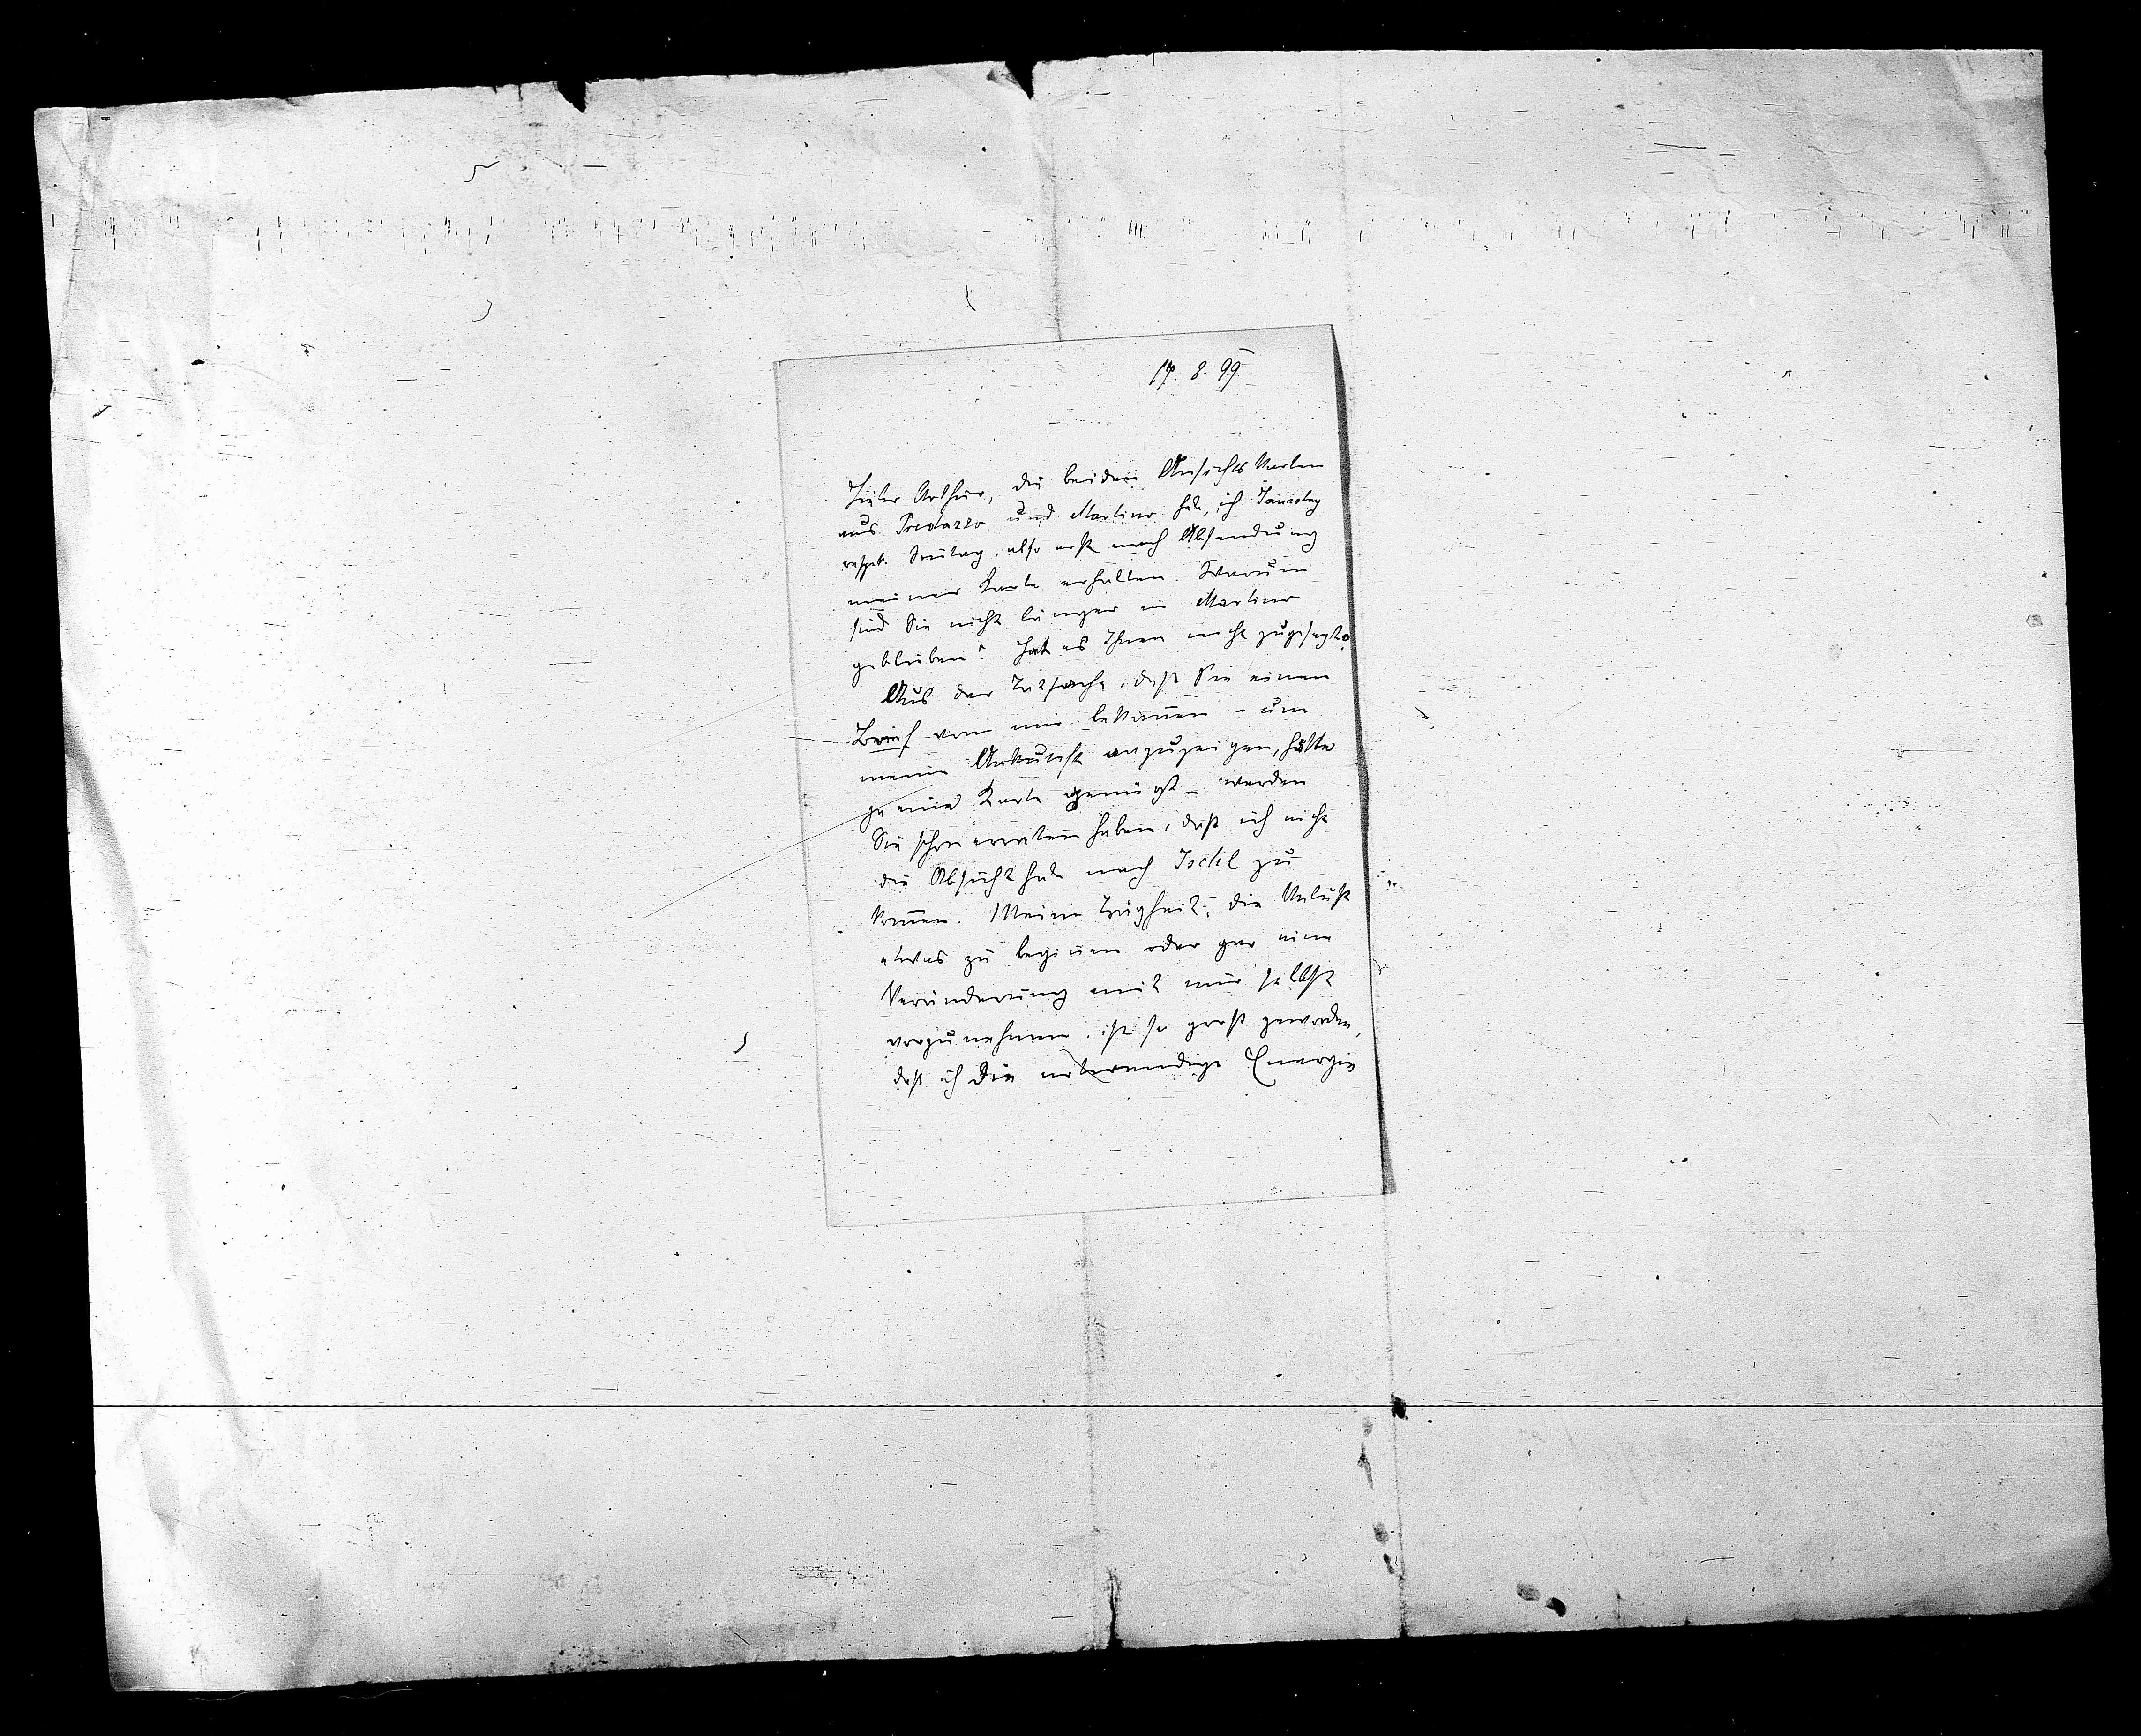 17. 8. 99
Lieber Arthur, die beiden Ansichts Karten
aus Predazzo und Martino hab, ich Samstag
respct. Sontag, also erst nach Absendung
meiner Karte erhalten. Warum
sind Sie nicht länger in Martino
geblieben? Hat es Ihnen nicht zugesagt?
Aus der Tatsache, daß Sie einen
Brief von mir bekom̄en – um
meine Ankunft anzuzeigen, hätte
ja eine Karte genügt – werden
Sie schon erraten haben, daß ich nicht
die Absicht habe nach Ischl zu
kom̄en. Meine Trägheit, die Unlust
etwas zu begin̄en oder gar eine
Veränderung mit mir selbst
vorzunehmen, ist so groß geworden,
daß ich die notwendige Energie